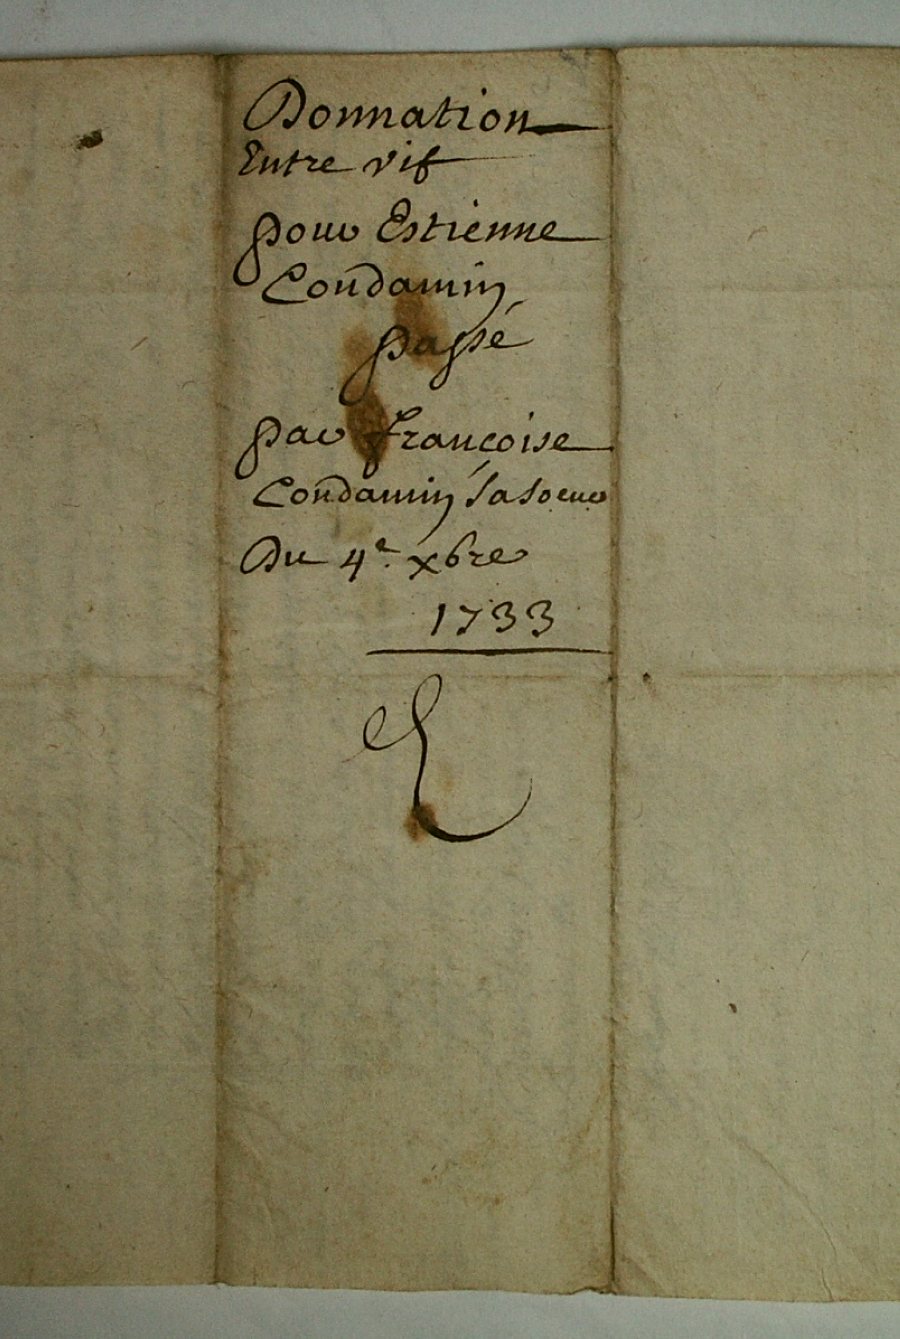 Donnation
Entre vif
pour Estienne
Condamin
passé
par françoise
Condamin sa soeur
Du 4e. xbre
1733